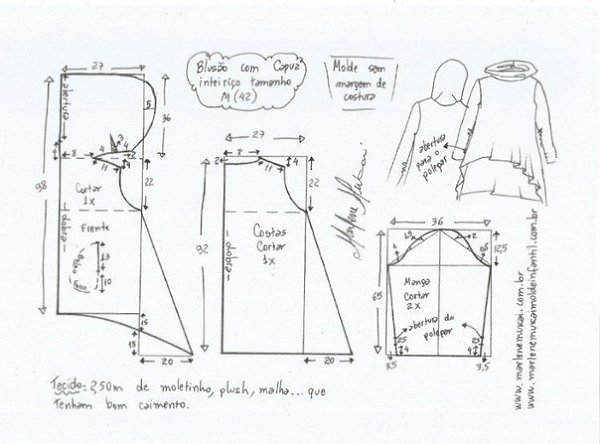 Blusão com Capuz
inteiriço tamanho
M (42)
Molde sem
margem de
costura
27
abertura
5
36
4
3
4
2
8
11
4
98
22
Cortar
1x
Frente
dobra
bolso
13
10
15
15
20
27
2
8
4
11
22
92
Costas
Cortar
1x
dobra
20
abertura
para o
polegar
36
2
12,5
65
Manga
Cortar
2x
abertura do
polegar
4
4
3,5
3,5
www.marlenemukai.com.br
www.marlenemukaimoldeinfantil.com.br
Tecido: 2,50m de moletinho, plush, malha... que
Tenham bom caimento.